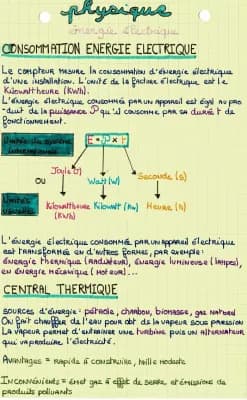 physique
énergie électrique
CONSOMMATION ENERGIE ELECTRIQUE
Le compteur mesure la consommation d'énergie électrique
d'une installation. L'unité de la facture électrique est le
Kilowattheure (KWh).
L'énergie électrique consommé par un appareil est égal au pro
-duit de la puissance P qu'il consomme par sa durée t de
fonctionnement.
Unités du système international
E = P x t
Joule (J) Watt (W) Seconde (s)
OU
Unités usuelles
Kilowattheure (KWh) Kilowatt (Kw) Heure (h)
L'énergie électrique consommé par un appareil électrique
est transformé en d'autres formes, par exemple:
énergie thermique (radiateur), énergie lumineuse (lampes),
en énergie mécanique (moteur)...
CENTRAL THERMIQUE
SOURCES d'énergie: pétrole, charbon, biomasse, gaz naturel
On fait chauffer de l'eau pour obt de la vapeur sous pression
La vapeur permet d'entrainer une turbine puis un alternateur
qui va produire l'électricité.
Avantages = rapide à construire, taille modeste
Inconvénients = émet gaz à effet de serre et émissions de
produits polluants